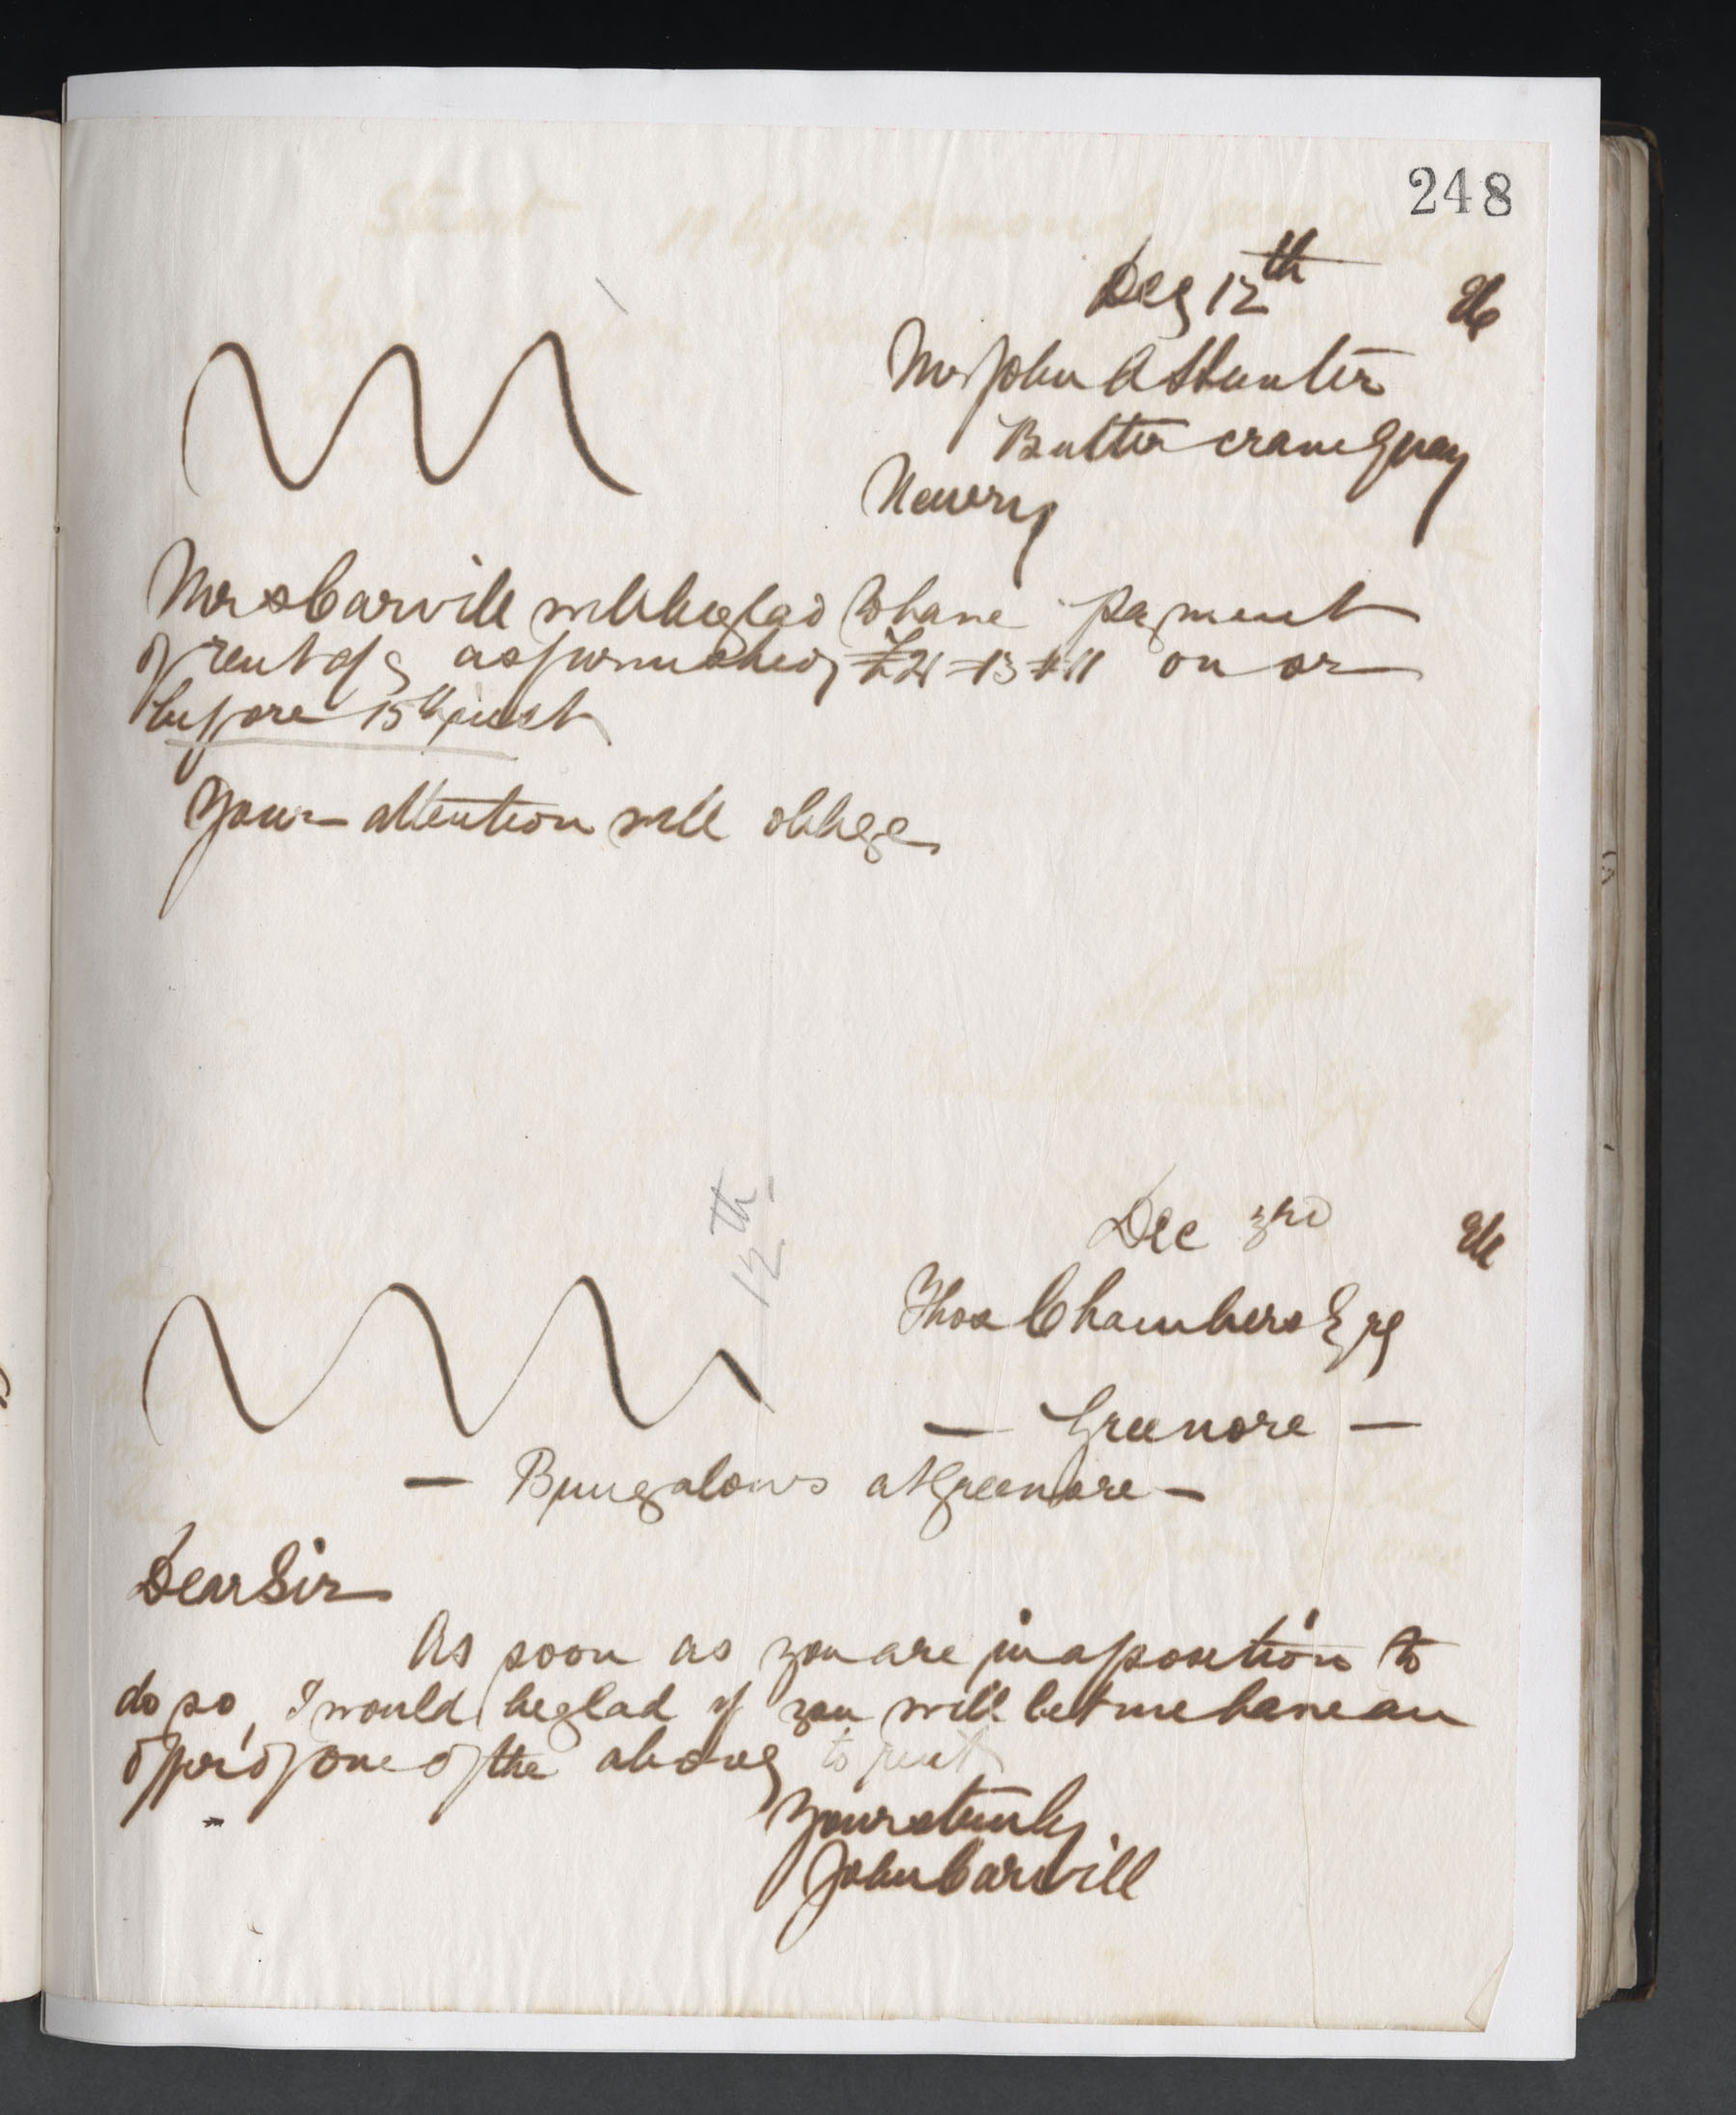 248
Dec 12th
Mr John A Hunter
Butter crane Quay
Newry
Mrs Carvill will be glad to have payment
of rent a/c as furnished, £21-13-11 on or
before 15th inst
Your attention will oblige
12th
Dec 3rd
Thos Chambers Esq
— Greenore —
— Bungalows at Greenore —
Dear Sir
As soon as you are in a position to
do so, I would be glad if you will let me have an
offer of one of the above to rent
Yours truly
John Carvill